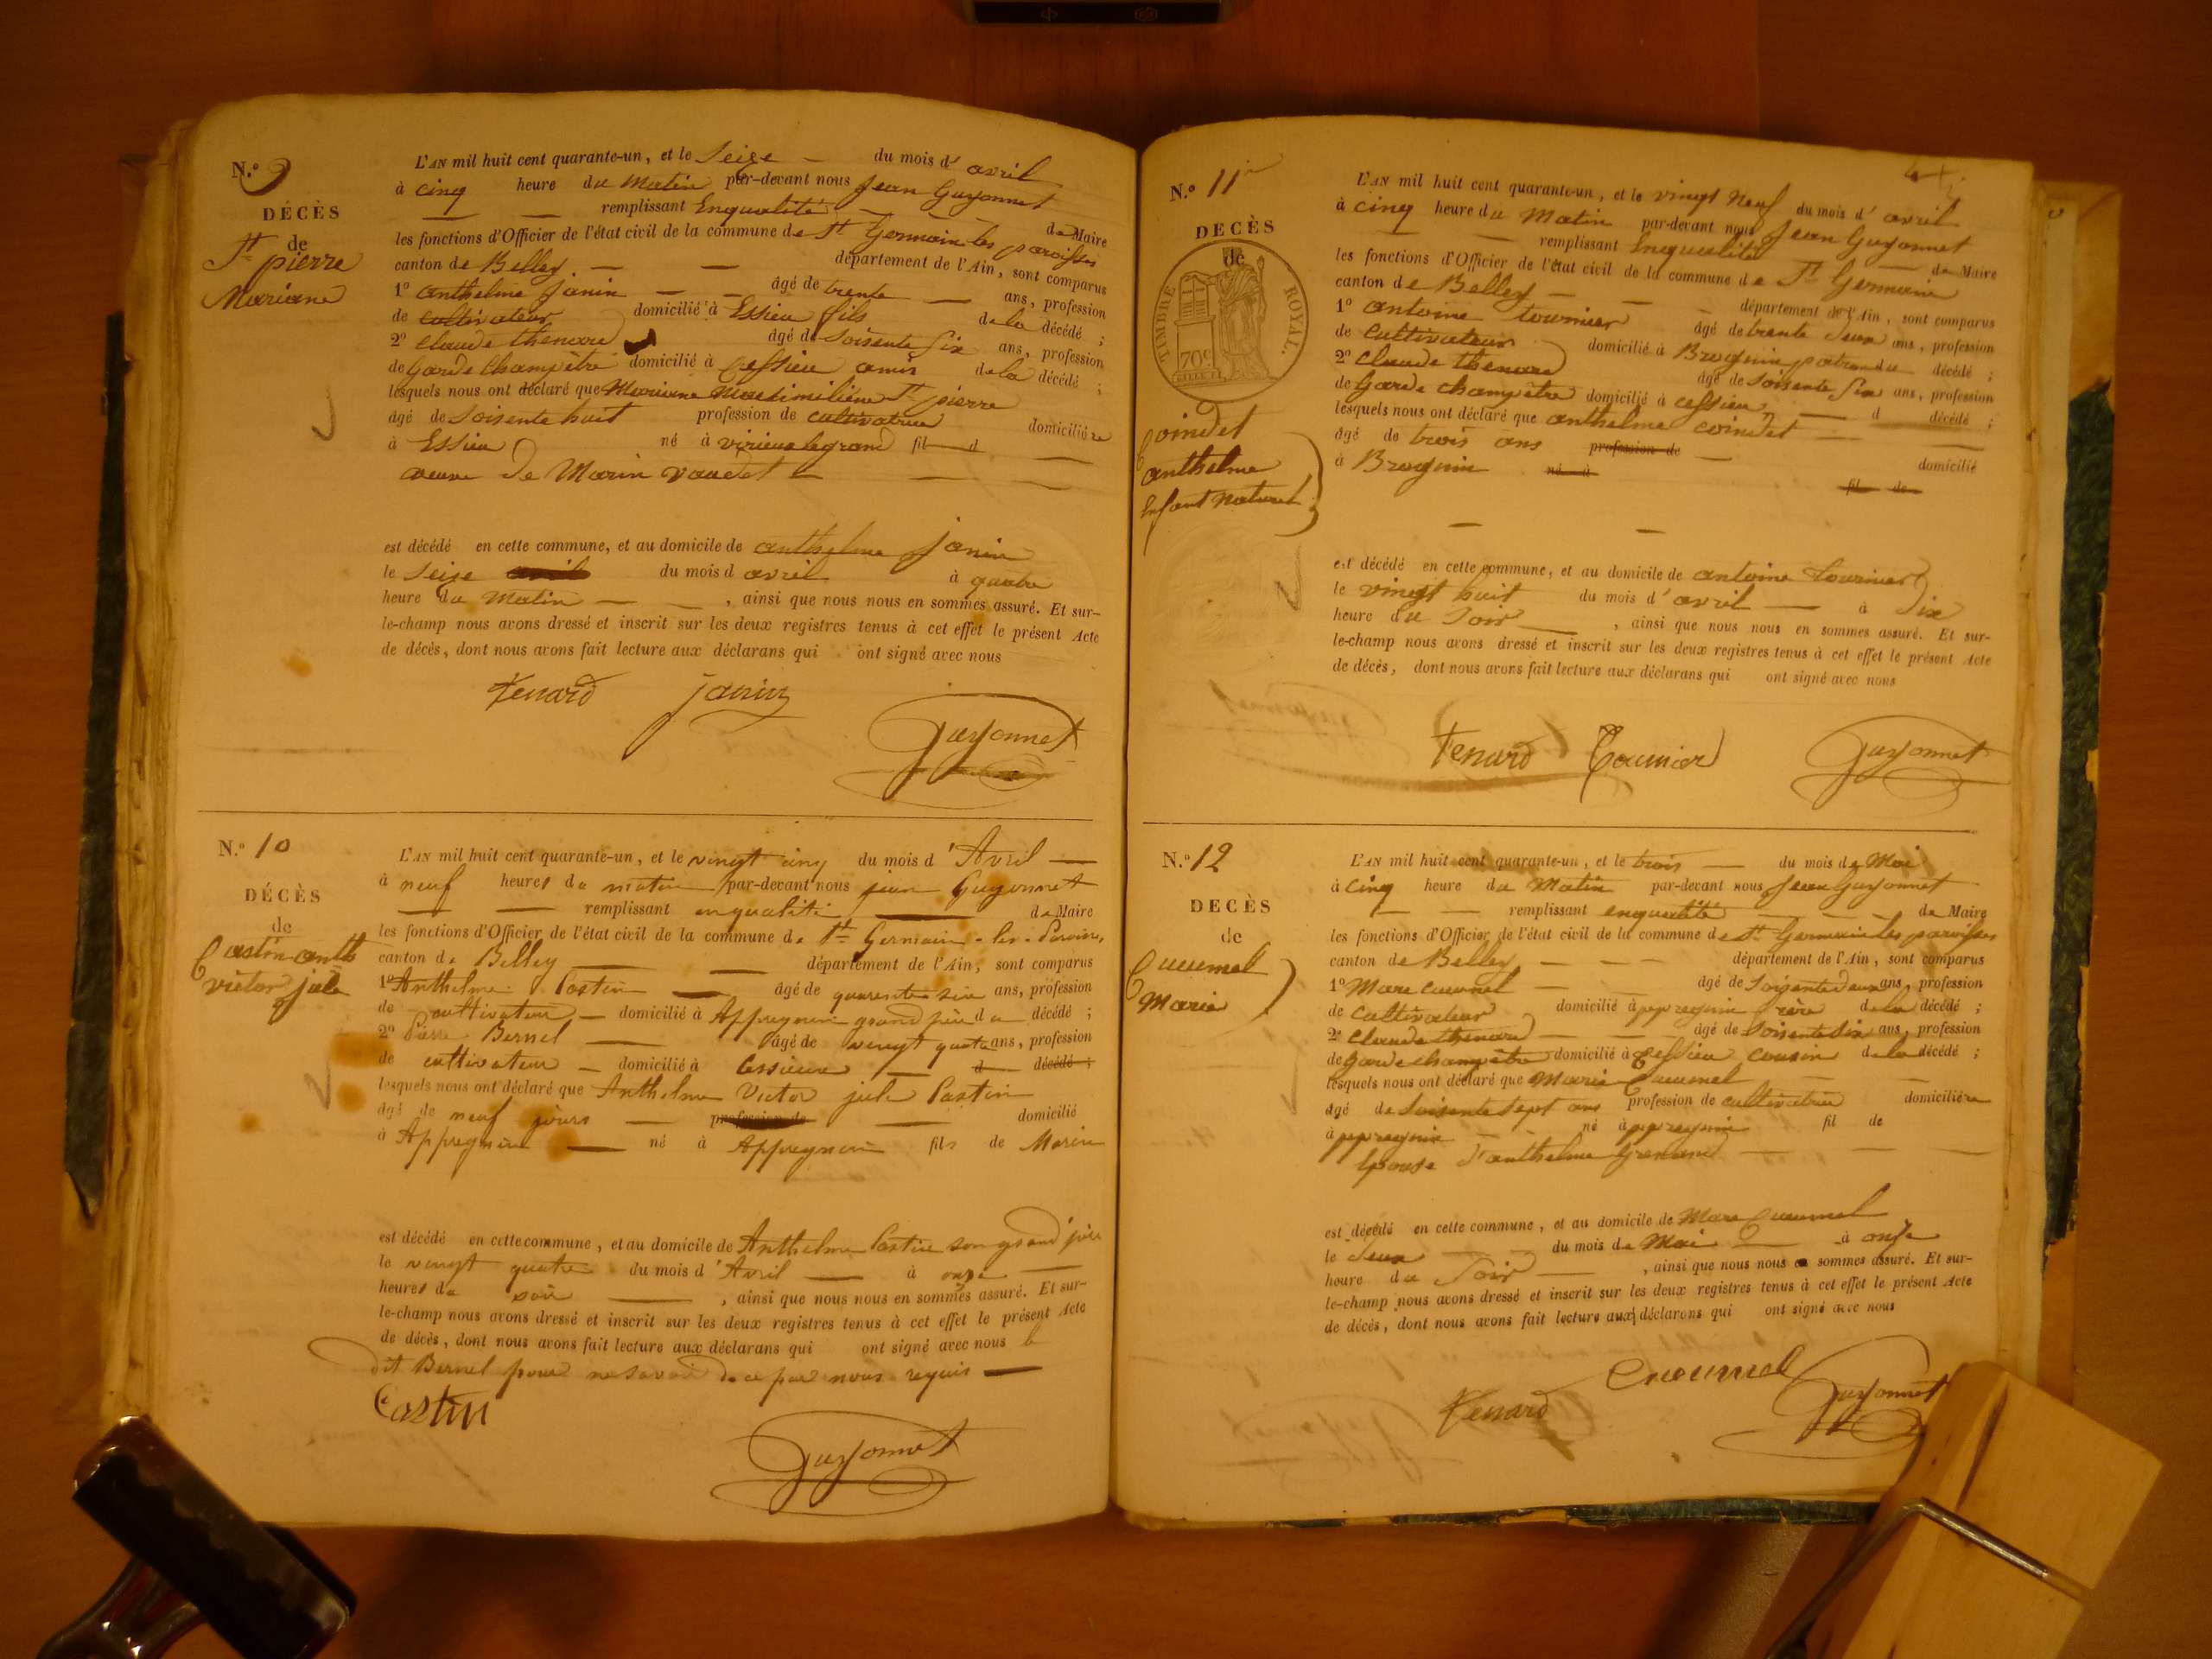 N.º 9
DÉCÈS
de
St pierre
Mariane
L'AN mil huit cent quarante-un, et le Seize du mois d' avril
à cinq heure du Matin par-devant nous Jean Guyonnet
remplissant Enqualité de Maire
les fonctions d'Officier de l'état civil de la commune de St Germain les paroisses
canton de Belley département de l'Ain, sont comparus
1º anthelme Janin âgé de trente ans, profession
de cultivateur domicilié à Essieu fils de la décédé ;
2º Claude thenard âgé de Soisente six ans, profession
de Garde Champêtre domicilié à Cessieu amis de la décédé ;
lesquels nous ont déclaré que Mariane Maximiliene St pierre
âgé de Soisente huit profession de cultivatrice domicilière
à Essieu né à virieu le grand fil d
veuve de Marin vaudet
est décédé en cette commune, et au domicile de anthelme Janin
le Seize avril du mois d avril à quatre
heure du Matin , ainsi que nous nous en sommes assuré. Et sur-
le-champ nous avons dressé et inscrit sur les deux registres tenus à cet effet le présent Acte
de décès, dont nous avons fait lecture aux déclarans qui ont signé avec nous
Tenard Janin
Guyonnet
N.º 10
DÉCÈS
de
Castin anth
victor jule
L'AN mil huit cent quarante-un, et le vingt cinq du mois d' Avril
à neuf heures du matin par-devant nous jean Guyonnet
remplissant en qualité de Maire
les fonctions d'Officier de l'état civil de la commune de St Germain-les-Paroiss.
canton de Belley département de l'Ain, sont comparus
1º Anthelme Castin âgé de quarente six ans, profession
de cultivateur domicilié à Appregnin grand père du décédé ;
2º Pierre Bernel âgé de vingt quatre ans, profession
de cultivateur domicilié à Cessieux d décédé ;
lesquels nous ont déclaré que Anthelme Victor jule Castin
âgé de neuf jours profession de domicilié
à Appregnin né à Appregnin fils de Marin
est décédé en cette commune, et au domicile de Anthelme Castin son grand père
le vingt quatre du mois d' Avril à onze
heures du soir , ainsi que nous nous en sommes assuré. Et sur-
le-champ nous avons dressé et inscrit sur les deux registres tenus à cet effet le présent Acte
de décès, dont nous avons fait lecture aux déclarans qui ont signé avec nous le
dit Bernel pour ne savoir de ce par nous requis
Castin
Guyonnet
N.º 11
DÉCÈS
de
TIMBRE ROYAL.
70c
Coindet
anthelme
Enfant Naturel
L'AN mil huit cent quarante-un, et le vingt Neuf du mois d' avril
à cinq heure du Matin par-devant nous Jean Guyonnet
remplissant Enqualité de Maire
les fonctions d'Officier de l'état civil de la commune de St Germain
canton de Belley département de l'Ain, sont comparus
1º antoine tournier âgé de trente deux ans, profession
de Cultivateur domicilié à Brognin patron du décédé ;
2º Claude thenard âgé de Soisente six ans, profession
de Garde champêtre domicilié à cessieu d décédé ;
lesquels nous ont déclaré que anthelme coindet
âgé de trois ans profession de domicilié
à Brognin né à fil de
est décédé en cette commune, et au domicile de antoine tournier
le vingt huit du mois d' avril à dix
heure du Soir , ainsi que nous nous en sommes assuré. Et sur-
le-champ nous avons dressé et inscrit sur les deux registres tenus à cet effet le présent Acte
de décès, dont nous avons fait lecture aux déclarans qui ont signé avec nous
Tenard Tournier Guyonnet
N.º 12
DECÈS
de
Cucumel
Marie
L'AN mil huit cent quarante-un, et le trois du mois de Mai
à cinq heure du Matin par-devant nous Jean Guyonnet
remplissant enqualité de Maire
les fonctions d'Officier de l'état civil de la commune de St Germain les paroisses
canton de Belley département de l'Ain, sont comparus
1º Marc cucumel âgé de Soisente deux ans, profession
de Cultivateur domicilié à appregnin frère de la décédé ;
2º Claude thenard âgé de Soisente six ans, profession
de garde champêtre domicilié à Cessieu cousin de la décédé ;
lesquels nous ont déclaré que Marie Cucumel
âgé de Soisente sept ans profession de cultivatrice domicilière
à appregnin né à appregnin fil de
Epouse d'anthelme Grenand
est décédé en cette commune, et au domicile de Marc Cucumel
le deux du mois de Mai à onze
heure du Soir , ainsi que nous nous en sommes assuré. Et sur-
le-champ nous avons dressé et inscrit sur les deux registres tenus à cet effet le présent Acte
de décès, dont nous avons fait lecture aux déclarans qui ont signé avec nous
Cucumel
Tenard Guyonnet